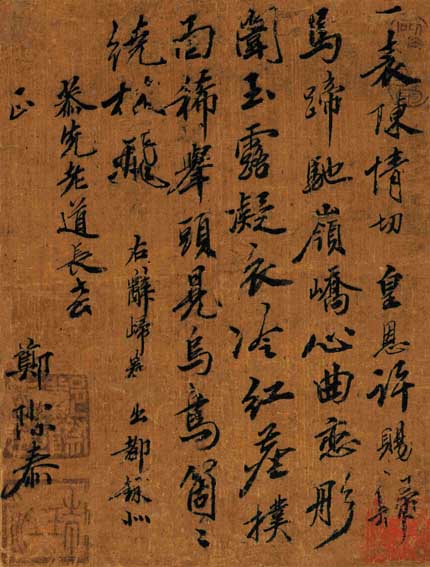 一表陳情切皇恩許賜歸
馬蹄馳嶺嶠心曲戀彤
闈玉露凝衣冷紅塵撲
面稀舉頭見烏鳥箇〻
繞飛
右辭歸養出都錄似
恭先老道長
正
鄭際泰